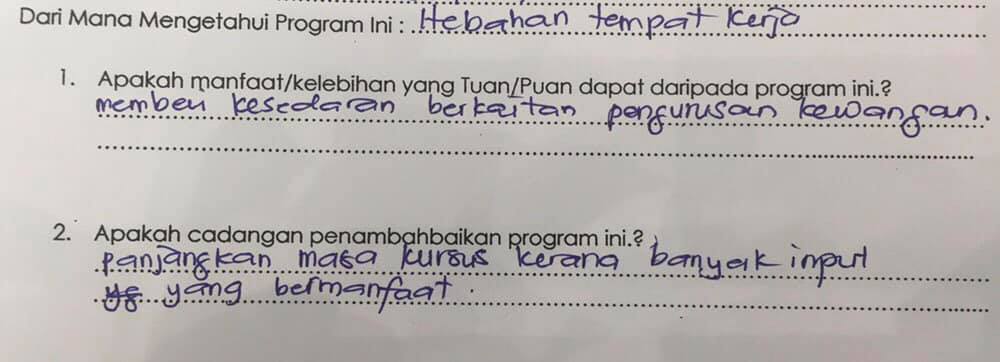 Dari Mana Mengetahui Program Ini : Hebahan tempat kerja
1. Apakah manfaat/kelebihan yang Tuan/Puan dapat daripada program ini.?
memberi kesedaran berkaitan pengurusan kewangan.
2. Apakah cadangan penambahbaikan program ini.?
panjangkan masa kursus kerana banyak input
yang bermanfaat.